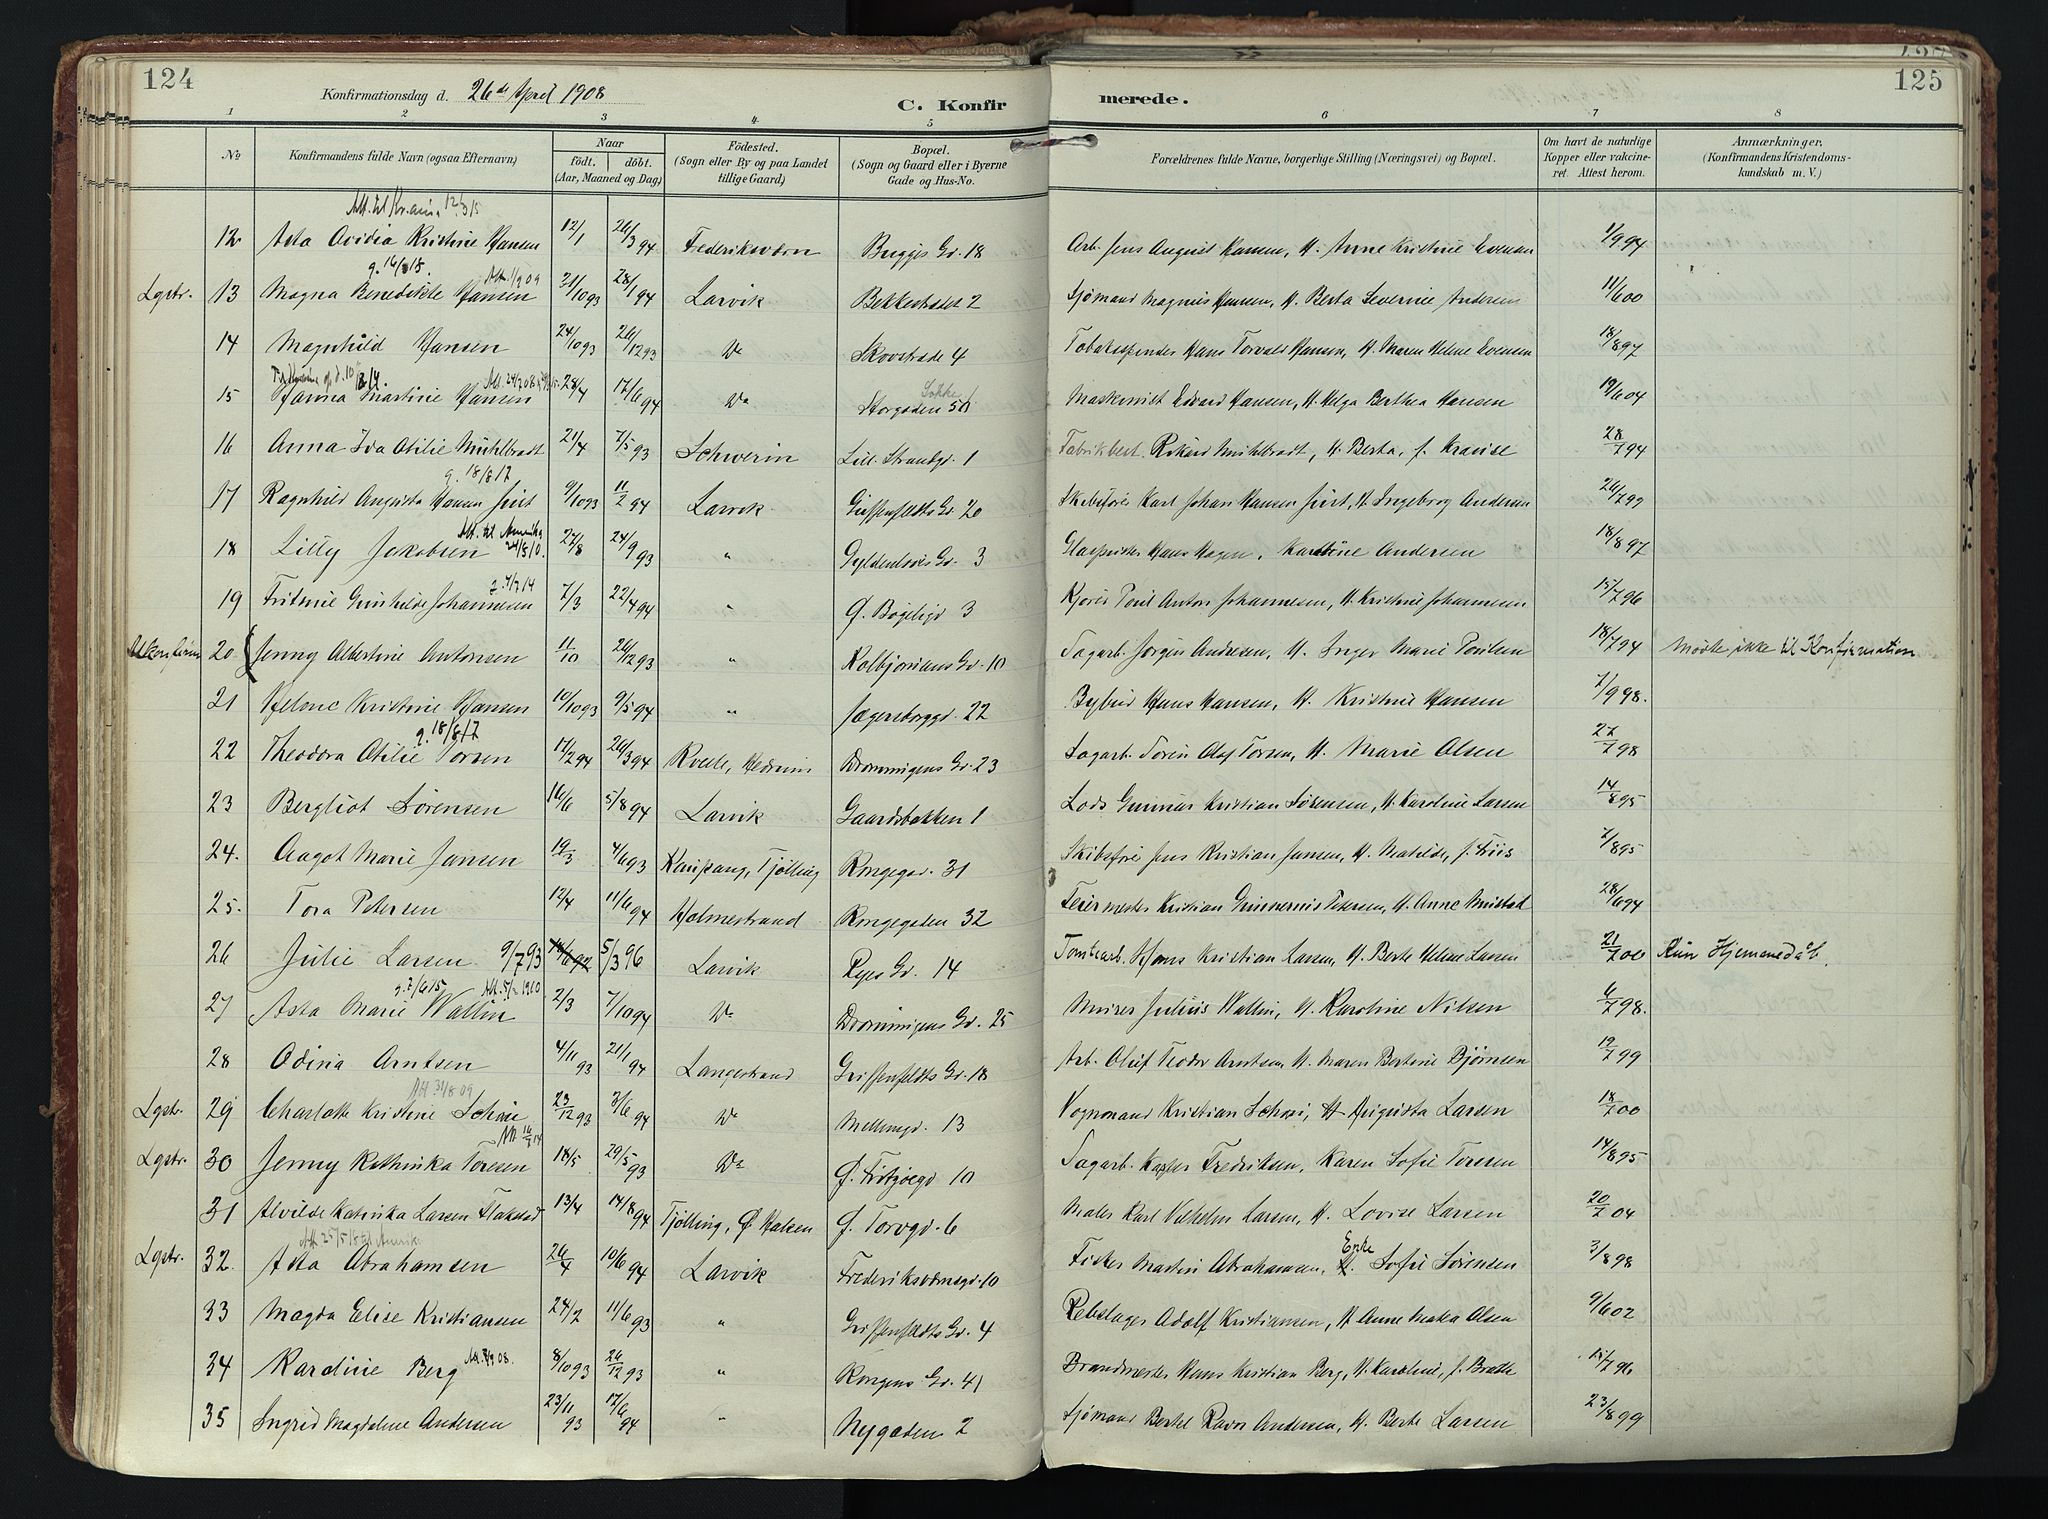 124
Konfirmationsdag d. 26de April 1908
C. Konfirmerede.
125
1 2 3 4 5 6 7 8
No
Konfirmandens fulde Navn (ogsaa Efternavn)
Naar født. døbt. (Aar, Maaned og Dag)
Fødested. (Sogn eller By og paa Landet tillige Gaard)
Bopæl. (Sogn og Gaard eller i Byerne Gade og Hus-No.
Forældrenes fulde Navne, borgerlige Stilling (Næringsvei) og Bopæl.
Om havt de naturlige Kopper eller vakcineret. Attest herom.
Anmærkninger. (Konfirmandens Kristendomskundskab m. V.)
12 Asta Ovidia Kristine Hansen 12/1 26/3 94 Frederiksværn Bugges Gd. 18 Arb. Jens August Hansen, H. Anne Kristine Evensen 1/9 94
g. 16/8 15. Att. 1/9 09
Lgstr. 13 Magna Benedikte Hansen 31/10 93 28/1 94 Larvik Bekkestrædet 2 Sjømand Magnus Hansen, H. Berta Severine Andersen 11/6 00
14 Magnhild Hansen 24/10 93 26/12 93 Do Skovstræde 4 Tobakspinder Hans Torvald Hansen, H. Maren Helene Evensen 18/8 97
15 Martine Hansen 28/4 17/6 94 Do Storgaden 50 Maskinist Edvard Hansen, H. Helga Berthea Hansen 19/6 04
16 Anna Ida Otilie Mühlbradt 21/4 7/5 93 Schwerin Lill. Strandgd. 1 Fabrikbest. Rikard Mühlbradt, H. Berta, f. Krause 28/7 94
g. 18/8 17
17 Ragnhild Augusta Hansen Just 9/10 93 11/2 94 Larvik Griffenfeldts Gd. 20 Skibsfører Karl Johan Hansen Just, H. Ingeborg Andersen 26/7 99
Att. til Amerika 24/8 10.
18 Lilly Jakobsen 27/8 24/9 93 " Gyldenløves Gd. 3 Glaspuster Hans Hagen, Karoline Andersen 18/8 97
19 Fritmie Gunhilde Johannesen 7/3 22/4 94 " Ø. Bøgeligd 3 Kjøres Poul Anton Johannesen, H. Kristine Johannesen 15/7 96
20 Jenny Albertine Antonsen 11/10 26/12 93 " Kolbjørnsens Gd. 10 Sagarb. Jørgen Andresen, H. Inger Marie Poulsen 18/7 94 Mødte ikke til Konfirmation
21 Helene Kristine Hansen 10/10 93 9/5 94 " Jægersborggd. 22 Bybud Hans Hansen, H. Kristine Hansen 7/9 98.
g. 18/8 17
22 Theodora Otilie Torsen 17/2 94 26/3 94 Kvelle, Hedrum Dronningens Gd. 23 Sagarb. Toren Olaf Torsen, H. Marie Olsen 27/7 98
23 Bergliot Sørensen 16/6 5/8 94 Larvik Gaardsbakken 1 Lods Gunnar Kristian Sørensen, H. Karoline Larsen 14/8 95
24. Aagot Marie Jansen 19/3 4/6 93 Kaupang, Tjølling Kongegad. 31 Skibsfører Jens Kristian Jansen, H. Matilde, f. Friis 7/8 95
25. Tora Petersen 12/4 11/6 94 Holmestrand Kongegaden 32 Feiermester Kristian Gunnerius Petersen, H. Anne Mustad 28/6 94
26 Julie Larsen 9/7 93 5/3 96 Larvik Ryes Gd. 14 Tomtearb. Hans Kristian Larsen, H. Berte Helene Larsen 21/7 00 Kun Hjemmedåb.
g. 7/6 15 Att. 5/2 1910
27 Asta Marie Wallin 2/3 7/10 94 Do Dronningens Gd. 25 Murer Julius Wallin, H. Karoline Nilsen 6/7 98.
28 Odina Arntsen 4/11 93 21/1 94 Langestrand Griffenfeldts Gd. 18 Arb. Oluf Teodor Arntsen, H. Maren Bertine Bjørnsen 19/7 99
Att. 31/8 09
Lgstr. 29 Charlotte Kristine Schøie 23/12 93 3/6 94 Do Mellemgd. 13 Vognmand Kristian Schøie, H. Augusta Larsen 18/7 00
Lgstr. 30 Jenny Kathinka Toresen 18/5 29/5 93 Do Ø. Fritzøegd 10 Sagarb. Kasper Fredriksen, Karen Sofie Torsen 14/8 95
31 Alvilde Katinka Larsen Flakstad 13/4 14/8 94 Tjølling, Ø. Halsen Ø. Torvgd. 6 Maler Karl Vilhelm Larsen, H. Lovise Larsen 20/7 04
Att. 25/5 15 til Amerik.
Lgstr. 32. Asta Abrahamsen 26/4 10/6 94 Larvik Frederiksværnsgd. 10 Fisker Martin Abrahamsen, Enke Sofie Sørensen 3/8 98
33 Magda Elise Kristiansen 24/2 11/6 93 " Griffenfeldts Gd. 4 Rebslager Adolf Kristiansen, H. Anne Matea Olsen 9/6 02
34 Karoline Berg 8/10 93 26/12 93 " Kongens Gd. 41 Brandmester Hans Kristian Berg, H. Karoline, f. Brathe 15/7 96
35 Ingrid Magdalene Andersen 23/11 93 17/6 94 " Nygaden 2 Sjømand Bertel Ravn Andersen, H. Berte Larsen 23/8 99